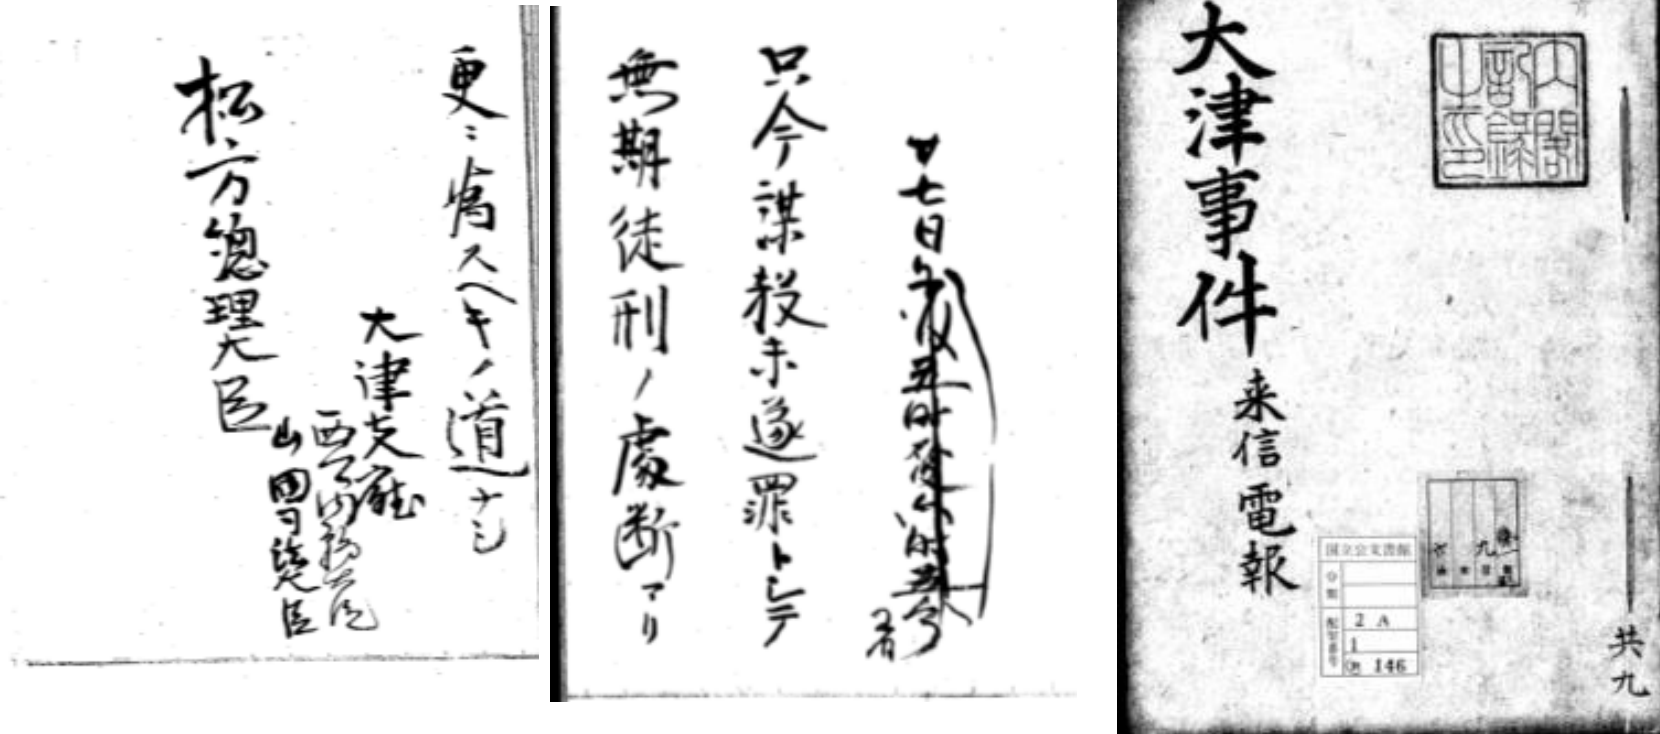 共九
内閣記録之印
大津事件 来信電報
国立公文書館
分類
配架番号
2 A
1
146
廿七日午後五時発六時五分
着
只今謀殺未遂罪トシテ
無期徒刑ノ處断アリ
更ニ為スヘキノ道ナシ
大津支廳
西郷内務大臣
山田司法大臣
松方總理大臣